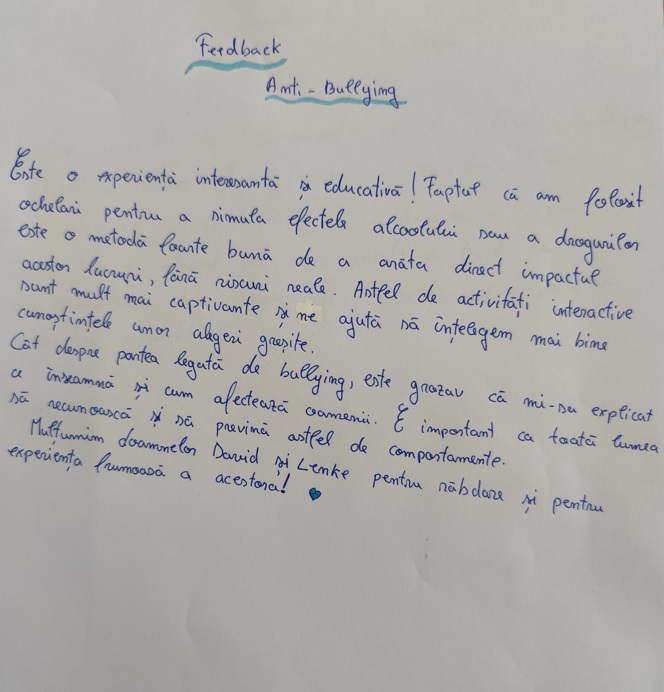 Feedback
Anti-Bullying
Este o experiență interesantă și educativă! Faptul că am folosit
ochelari pentru a simula efectele alcoolului sau a drogurilor
este o metodă foarte bună de a arăta direct impactul
acestor lucruri, fără riscuri reale. Astfel de activități interactive
sunt mult mai captivante și ne ajută să înțelegem mai bine
cunoștințele unor alegeri greșite.
Cât despre partea legată de bullying, este grozav că mi-sa explicat
ce înseamnă și cum afectează oamenii. E important ca toată lumea
să recunoască și să prevină astfel de comportamente.
Mulțumim doamnelor David și Lenke pentru răbdare și pentru
experiența frumoasă a acestora!